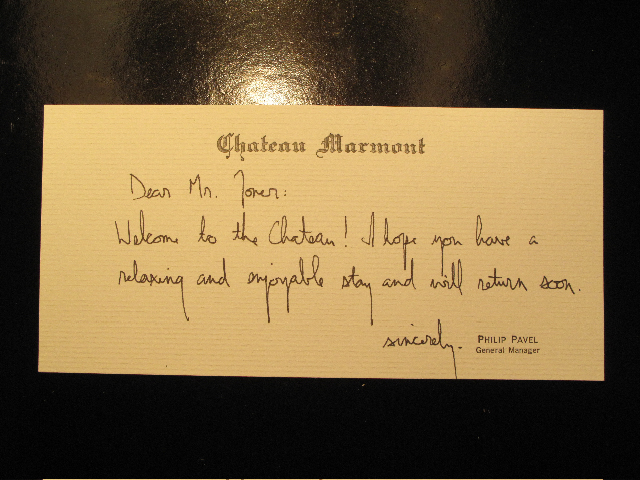 Chateau Marmont
Dear Mr.
Welcome to the Chateau! I hope you have a
relaxing and enjoyable stay and will return soon.
sincerely.
PHILIP PAVEL
General Manager